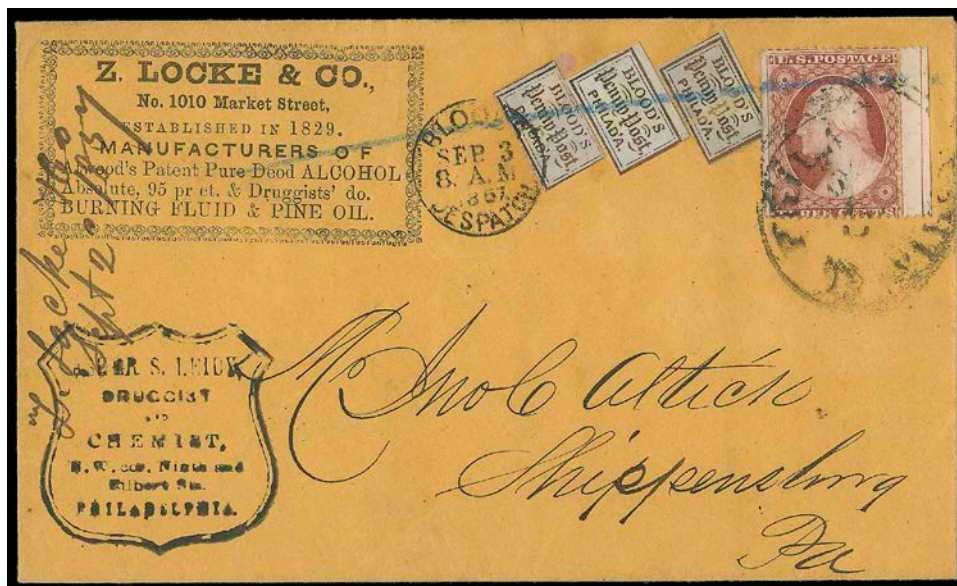 Z. LOCKE & CO.,
No. 1010 Market Street,
ESTABLISHED IN 1829.
MANUFACTURERS OF
Atwood's Patent Pure Deod ALCOHOL
Absolute, 95 pr ct. & Druggists' do.
BURNING FLUID & PINE OIL.
BLOOD'S
SEP 3
8. A.M
1857
DESPATCH
BLOOD'S
Penny Post.
PHILAD'A.
BLOOD'S
Penny Post.
PHILAD'A.
BLOOD'S
Penny Post.
PHILAD'A.
U.S. POSTAGE
THREE CENTS
S. LEIDY,
DRUGGIST
AND
CHEMIST,
N.W. cor. Ninth and
Filbert Sts.
PHILADELPHIA.
Locke & Co
Sept 2
Jno C Altick
Shippensburg
Pa